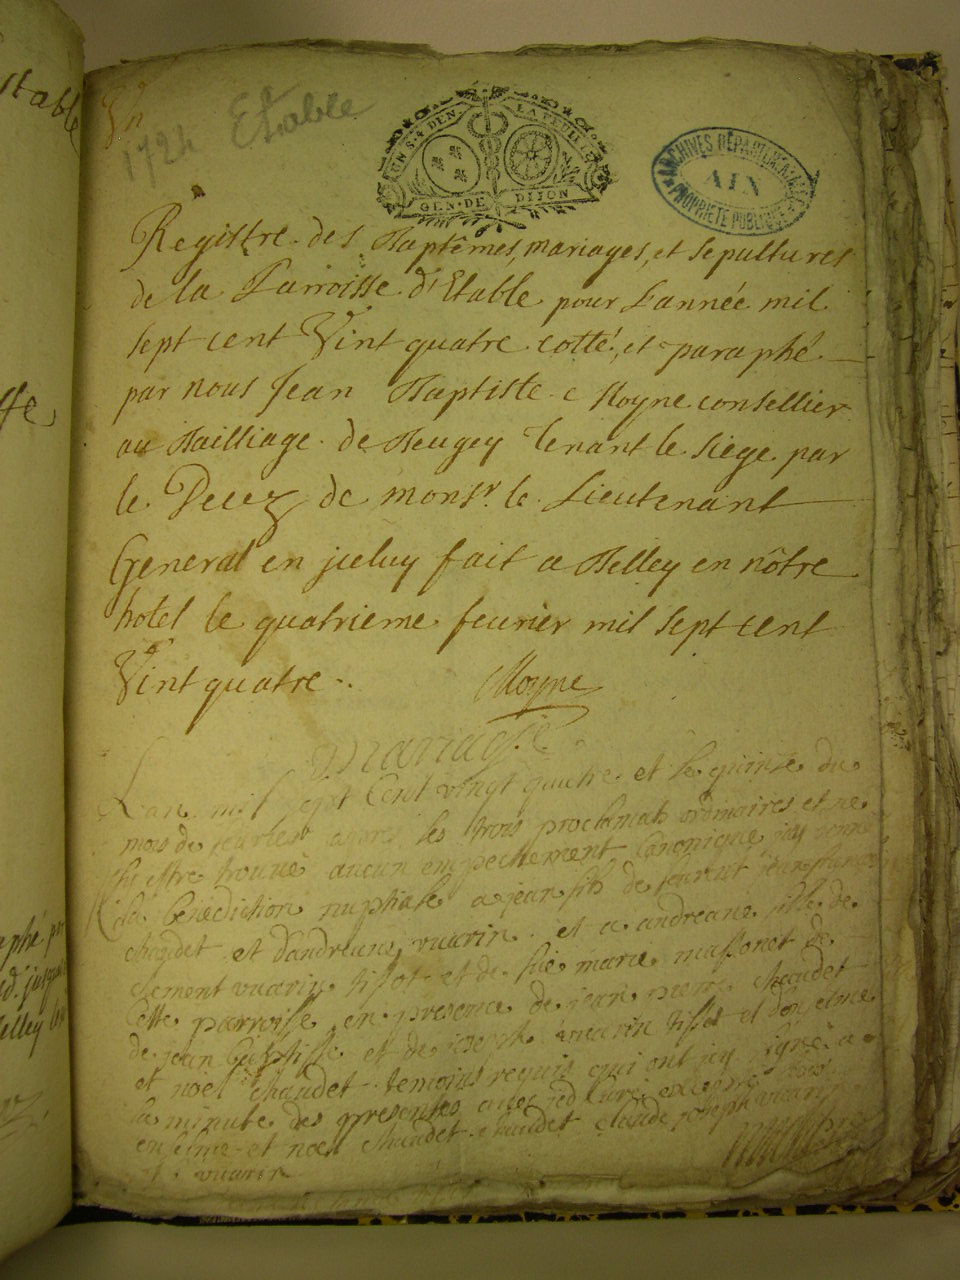 1724 Etable
UN S. 4 DEN. LA FEUILLE
GEN. DE DIJON
ARCHIVES DÉPARTEMENTALES
AIN
PROPRIÉTÉ PUBLIQUE
Registre des Baptêmes, mariages, et sepultures
de la Parroisse d'Etable pour L'année mil
sept cent Vint quatre cotté, et paraphé
par nous Jean Baptiste Moyne consellier
au Bailliage de Beugey tenant le siege par
le Decez de monsr. le Lieutenant
General en iceluy fait a Belley en nôtre
hotel le quatrieme feurier mil sept cent
Vint quatre.
Moyne
Mariage
L'an mil sept Cent vingt quatre et le quinze du
mois de feurier apres les trois proclamab ordinaires et ne
s'estre trouué aucun empechement Canonique jay donné
la benediction nuptiale a jean fils de
chaudet et d'andreane vuarin et a andreane fille de
clement vuarin tissot et de fue marie massonet de
cette parroisse en presence de jean pierre chaudet
de jean baptiste et de joseph vuarin tissot et
et noel chaudet temoins requis qui ont
la minute des presentes auec
et noel chaudet chaudet claude joseph vuarin
vuarin